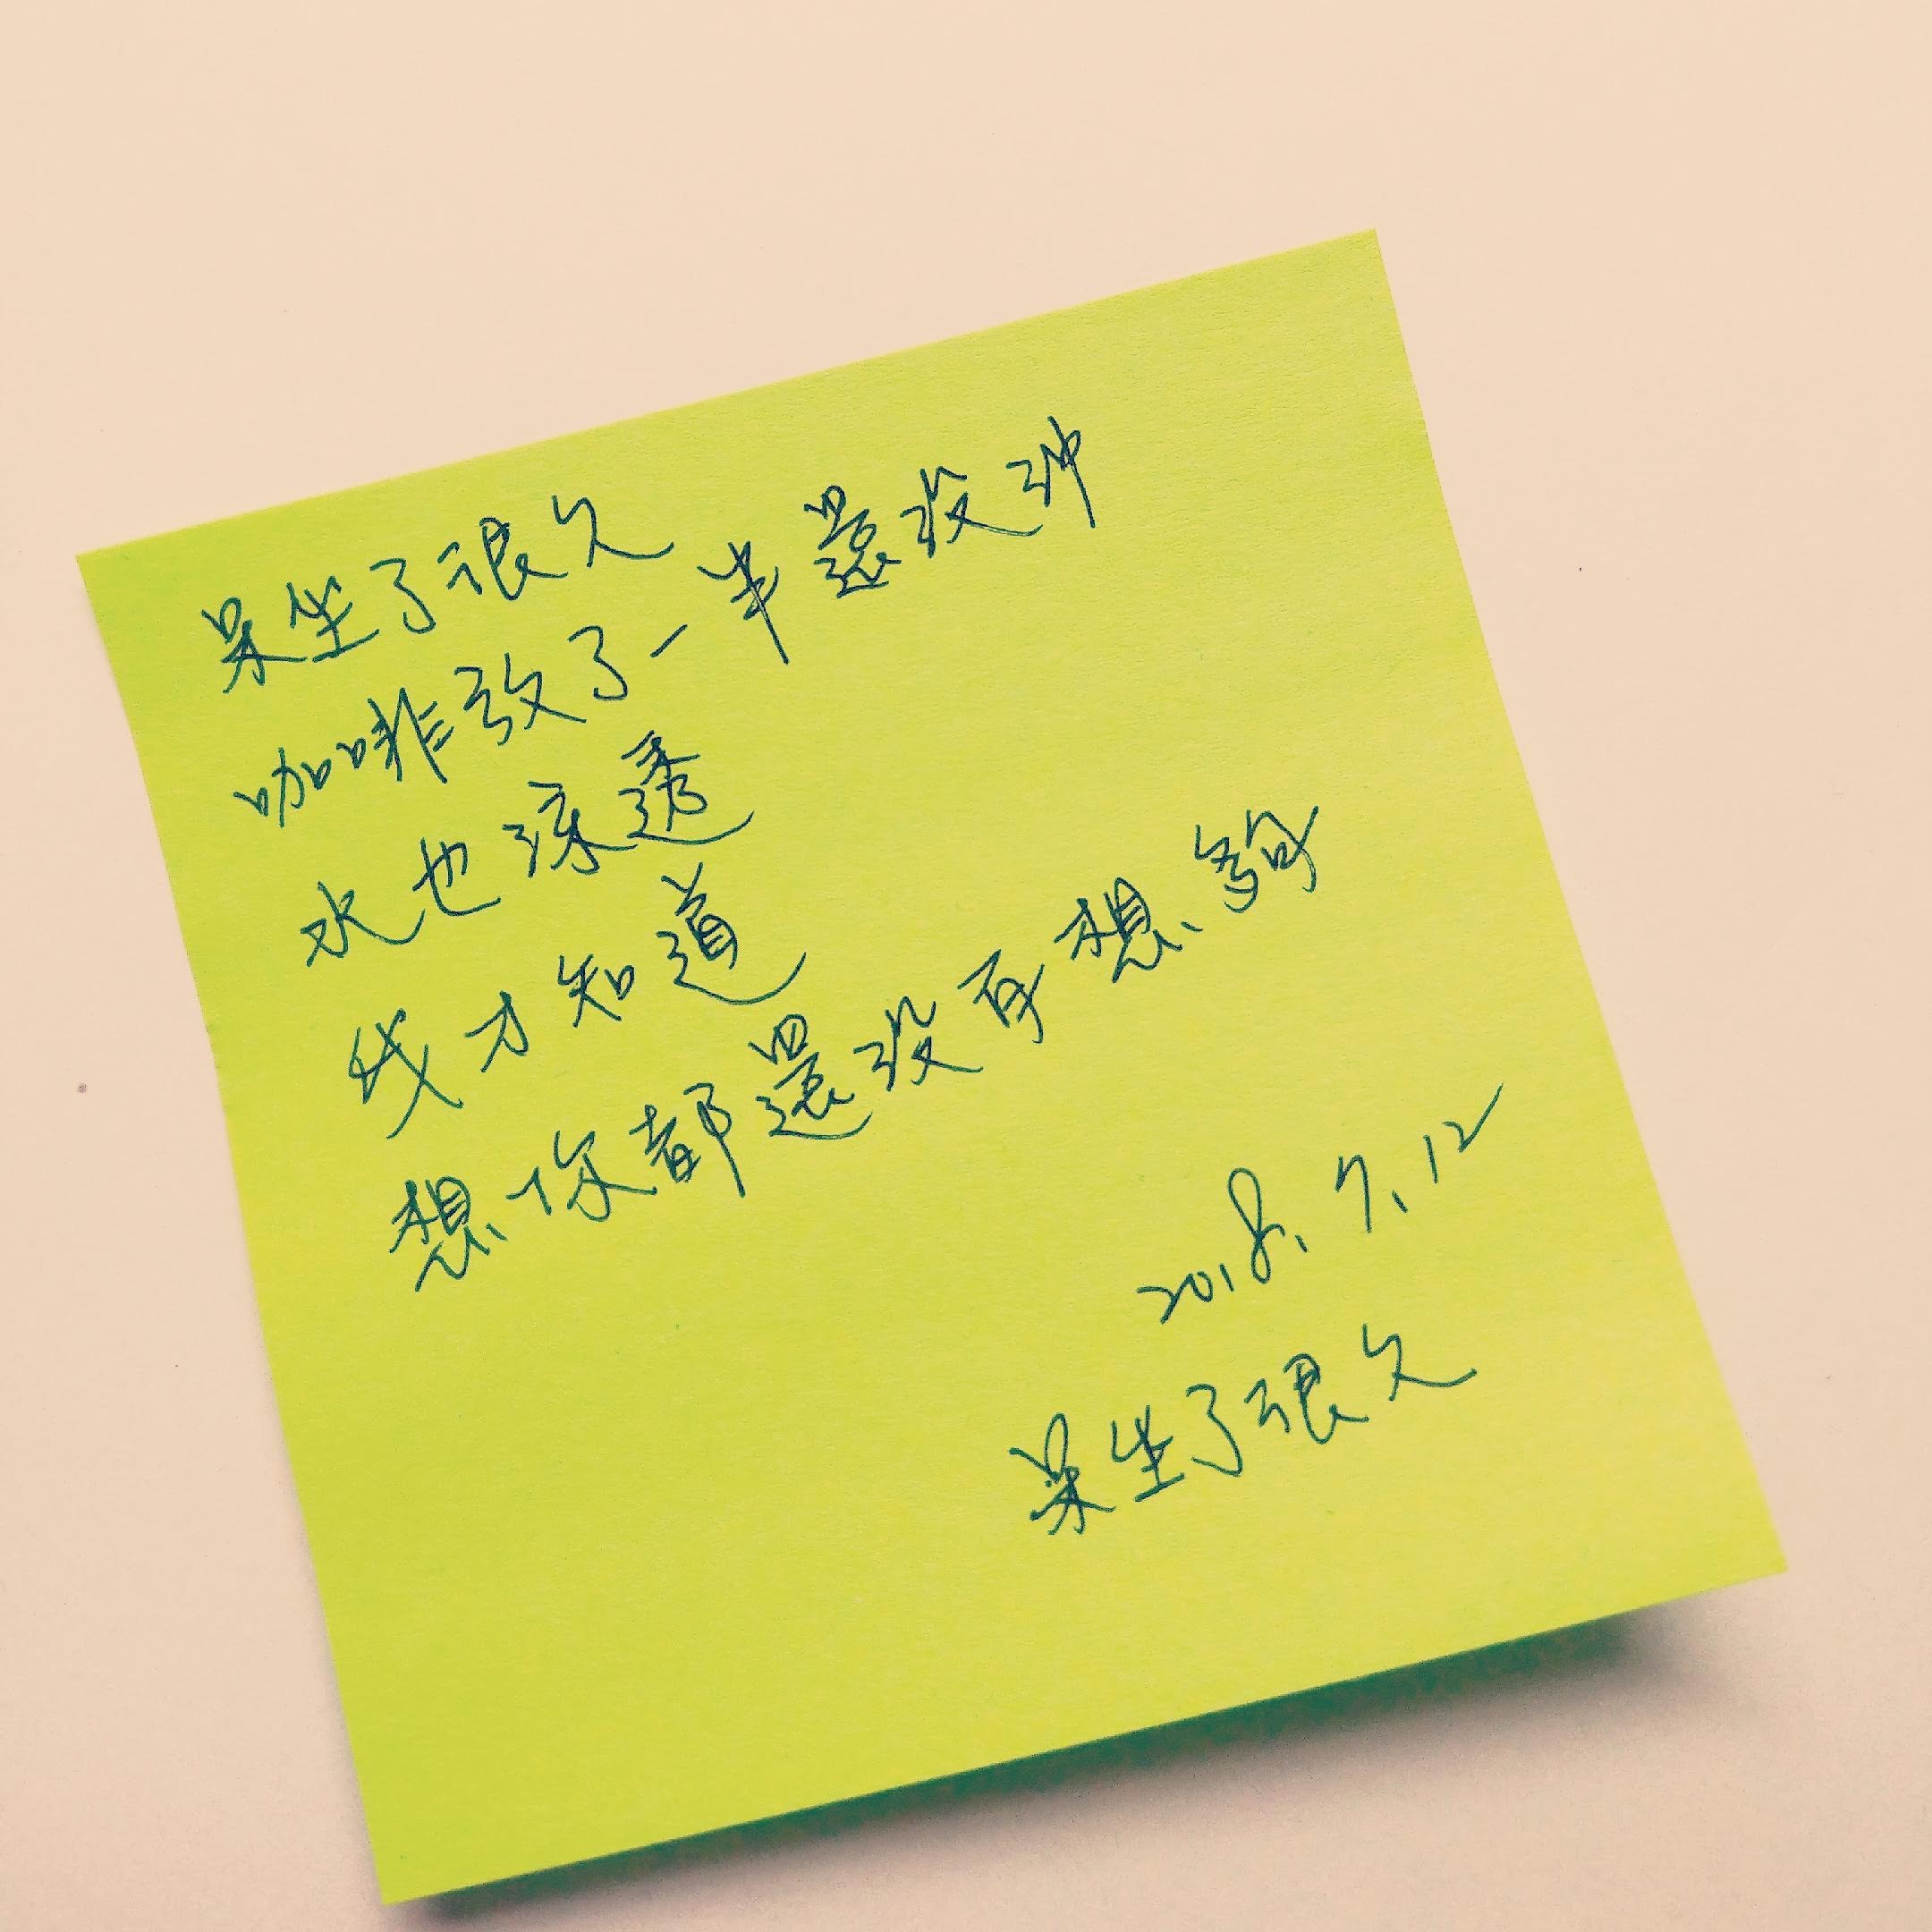 呆坐了很久
咖啡放了一半還沒沖
水也涼透
我才知道
想你都還沒有想夠
2018.7.12
呆坐了很久